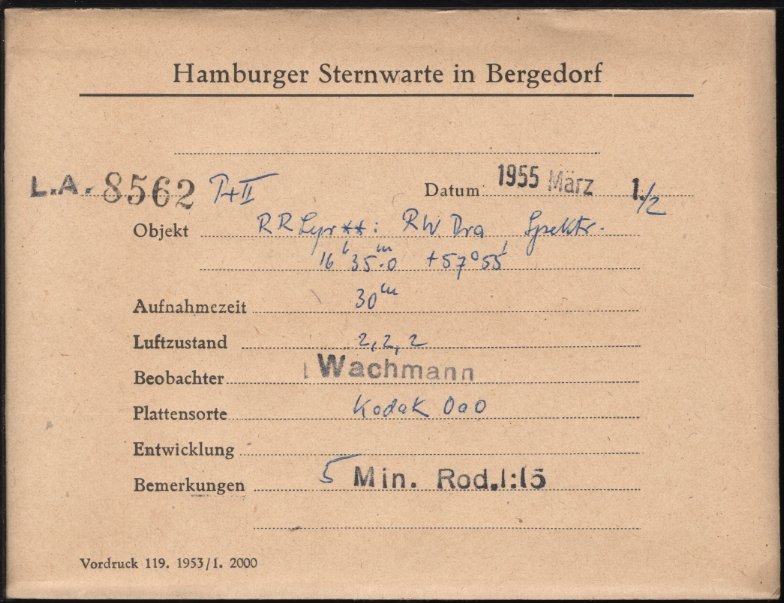 Hamburger Sternwarte in Bergedorf
L.A. 8562 P+II Datum 1955 März 1./2
Objekt RR Lyr **: RW Dra Spektr.
16h 35m.0 +57°55'
Aufnahmezeit 30m
Luftzustand 2,2,2
Beobachter Wachmann
Plattensorte Kodak OaO
Entwicklung
Bemerkungen 5 Min. Rod.1:15
Vordruck 119. 1953/1. 2000